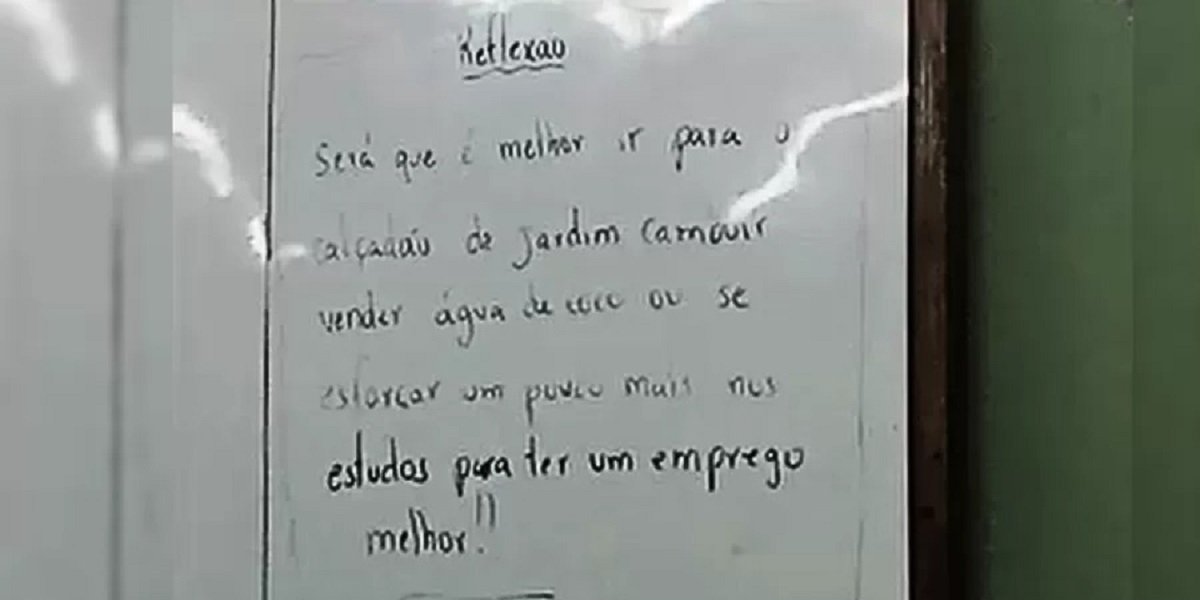 Reflexão
Será que é melhor ir para o
calçadão de Jardim Camburi
vender água de coco ou se
esforçar um pouco mais nos
estudos para ter um emprego
melhor!!!